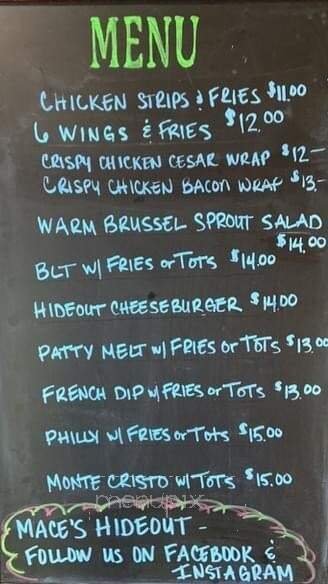 MENU
CHICKEN STRIPS & FRIES $11.00
6 WINGS & FRIES $12.00
CRISPY CHICKEN CESAR WRAP $12-
CRISPY CHICKEN BACON WRAP $13.-
WARM BRUSSEL SPROUT SALAD
$14.00
BLT W/ FRIES or TOTS $14.00
HIDEOUT CHEESEBURGER $14.00
PATTY MELT W/ FRIES or TOTS $13.00
FRENCH DIP W/ FRIES or TOTS $13.00
PHILLY W/ FRIES or Tots $15.00
MONTE CRISTO W/ TOTS $15.00
menupix
MACE'S HIDEOUT -
FOLLOW US ON FACEBOOK &
INSTAGRAM